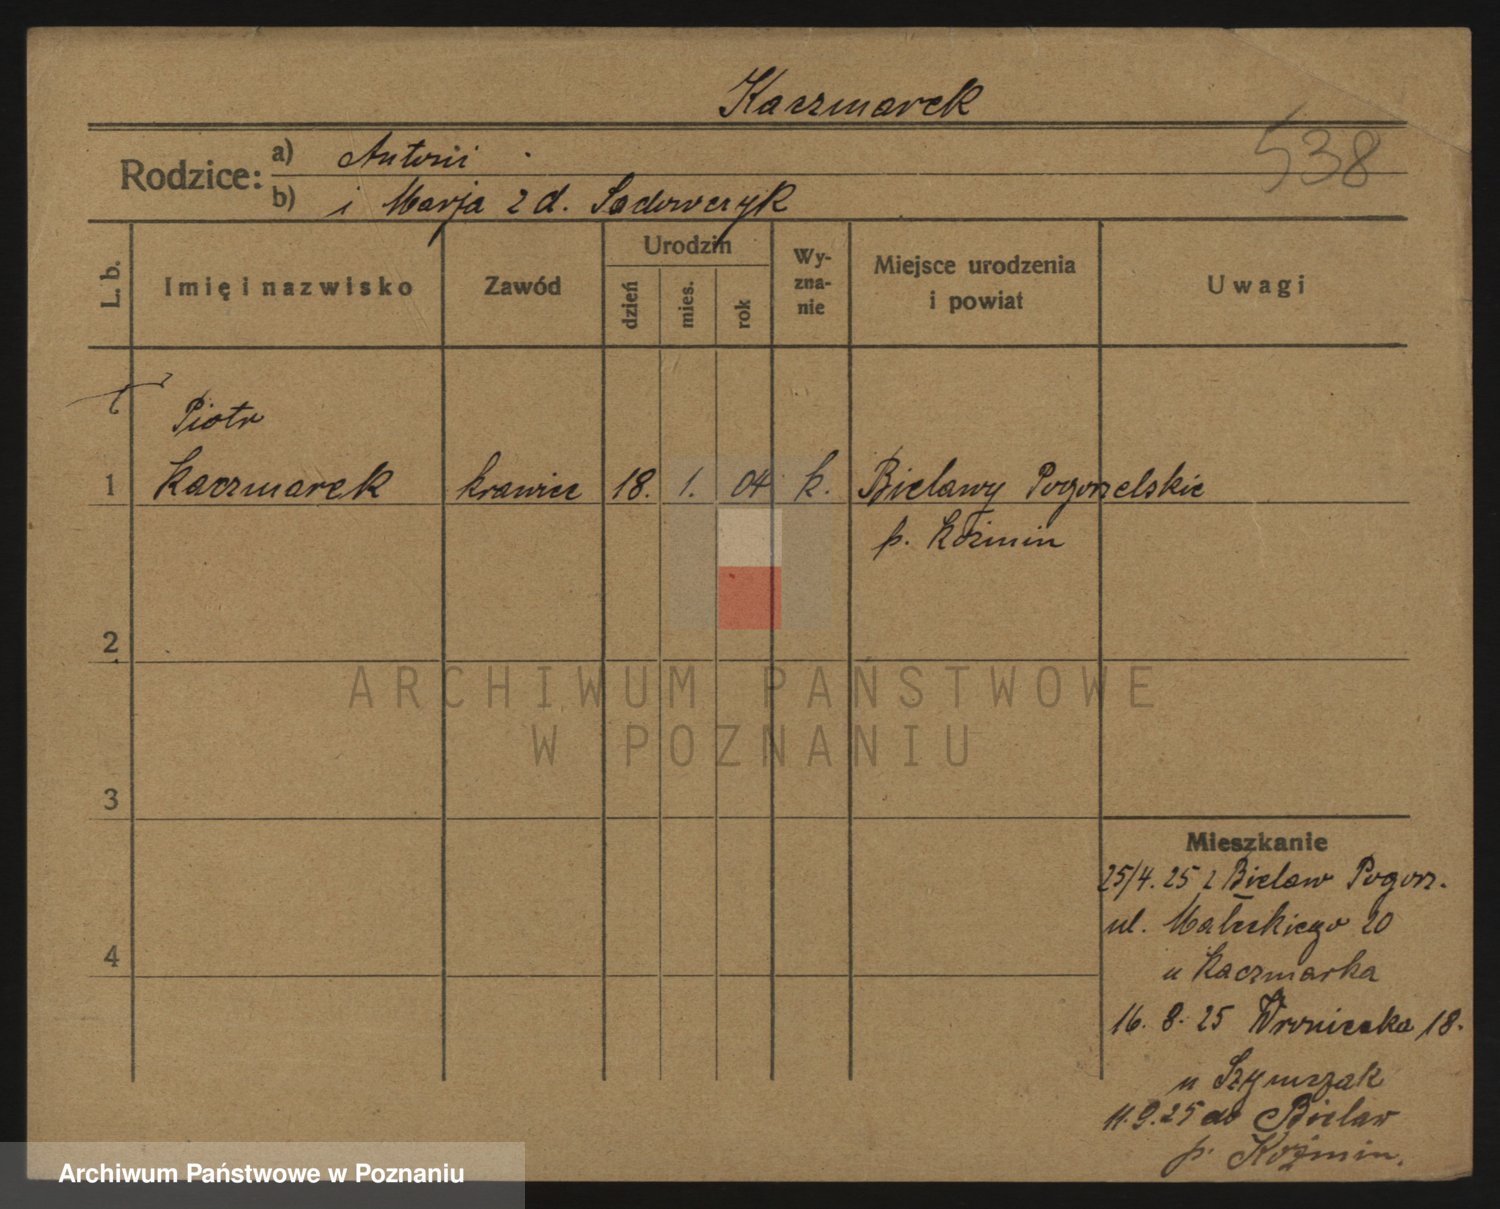 Kaczmarek
538
Rodzice:
a) Antoni
b) i Marja z d. Sadowczyk
L. b.
Imię i nazwisko
Zawód
Urodzin
dzień
mies.
rok
Wy-
zna-
nie
Miejsce urodzenia
i powiat
Uwagi
Piotr
1 Kaczmarek krawiec 18. 1. 04 k. Bielawy Pogorzelskie
p. Koźmin
2
3
4
ARCHIWUM PAŃSTWOWE
W POZNANIU
Mieszkanie
25/4. 25 z Bielaw Pogorz.
ul. Małeckiego 20
u Kaczmarka
16. 8. 25 Wroniecka 18.
u Szymczak
11.9.25 do Bielaw
p. Koźmin.
Archiwum Państwowe w Poznaniu